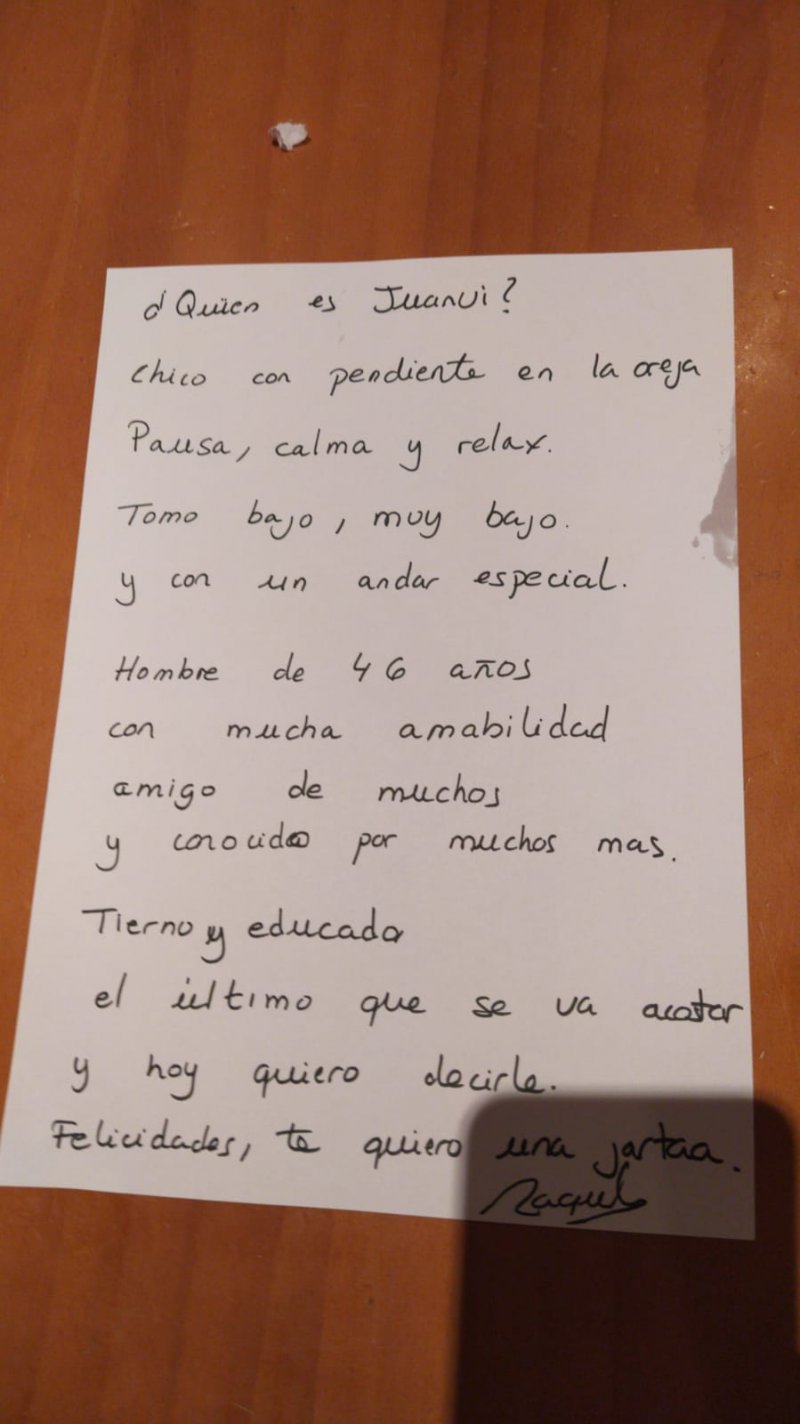 ¿Quien es Juanvi?
Chico con pendiente en la oreja
Pausa, calma y relax.
Tomo bajo, muy bajo.
y con un andar especial.
Hombre de 46 años
con mucha amabilidad
amigo de muchos
y conocido por muchos mas.
Tierno y educado
el último que se va acostar
y hoy quiero decirle.
Felicidades, te quiero una jartaa.
Raquel